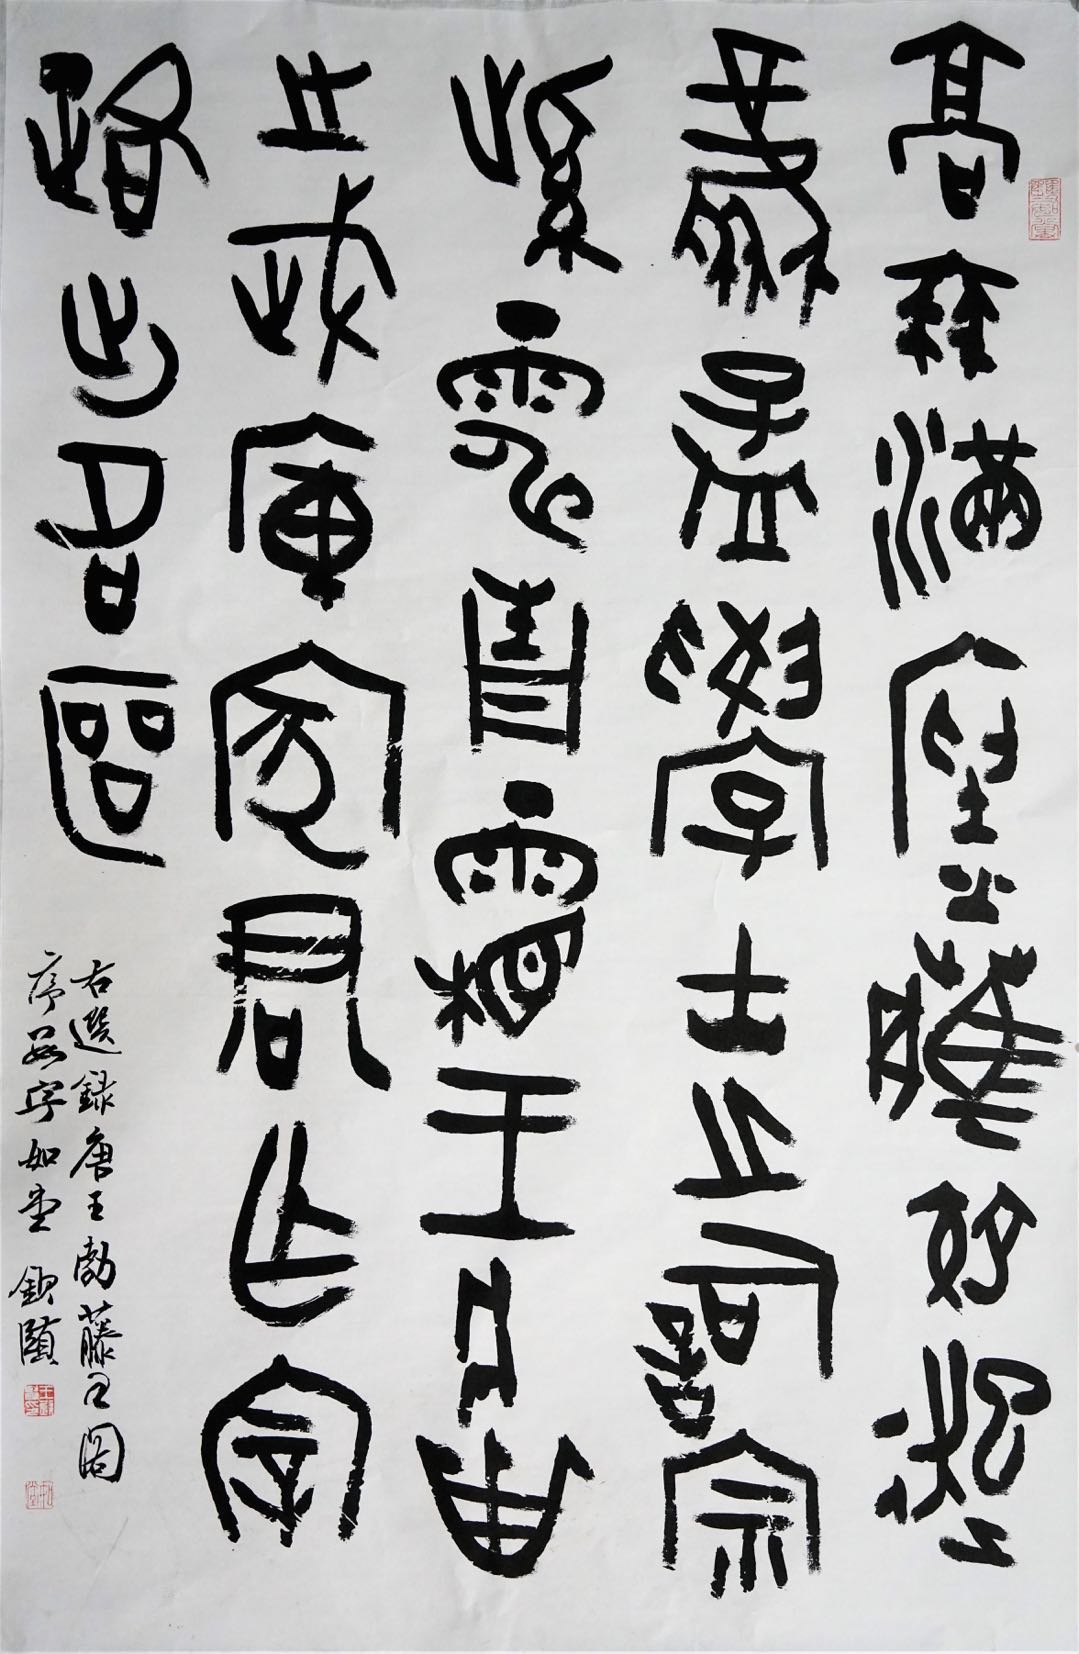 高朋滿座騰蛟起
鳳孟學士之詞宗
紫電青霜王將軍
之武庫家君作宰
路出名區
右選錄唐王勃藤王閣
序 字如堂